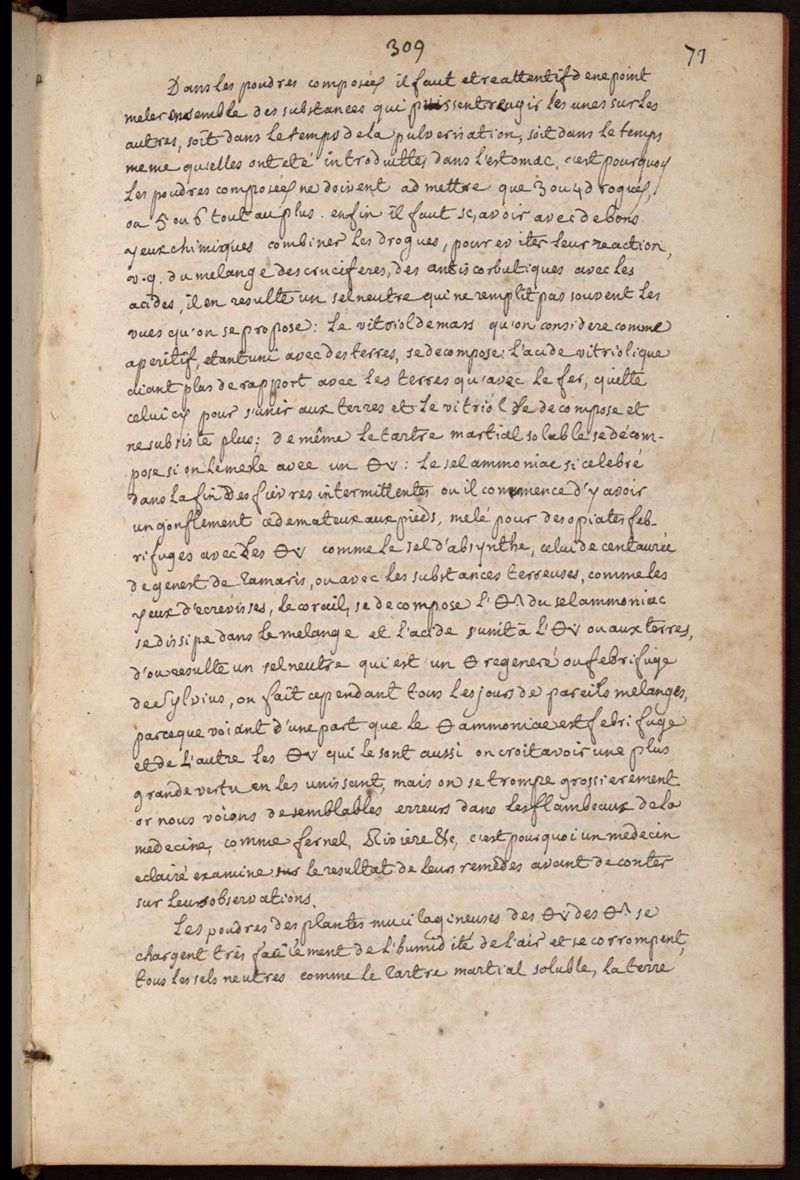 309
71
Dans les poudres composées il faut etre attentif de ne point
meler ensemble des substances qui puissent reagir les unes sur les
autres, soit dans le temps de la pulverisation, soit dans le temps
meme qu'elles ont eté introduittes dans l'estomac, c'est pourquoy
les poudres composées ne doivent admettre que 3 ou 4 drogues,
ou 5 ou 6 tout au plus. enfin il faut sçavoir avec de bons
yeux chimiques combiner les drogues, pour eviter leur reaction,
v.g. du melange des cruciferes, des antiscorbutiques avec les
acides, il en resulte un sel neutre qui ne remplit pas souvent les
vues qu'on se propose: Le vitriol de mars qu'on considere comme
aperitif, etant uni avec des terres, se decompose: l'acide vitriolique
aiant plus de rapport avec les terres qu'avec le fer, quitte
celui cy pour s'unir aux terres et le vitriol se decompose et
ne subsiste plus; de même le tartre martial soluble se décom-
pose si on le mesle avec un : Le sel ammoniac si celebré
dans la fin des fievres intermittentes ou il commence d'y avoir
un gonflement œdemateux aux pieds, melé pour des opiates feb-
rifuges avec les comme le sel d'absynthe, celui de centaurée
de genest de tamaris, ou avec les substances terreuses, comme les
yeux d'ecrevisses, le corail, se decompose l' du sel ammoniac
se dissipe dans le melange et l'acide s'unit à l' ou aux terres,
d'ou resulte un sel neutre qui est un regeneré ou febrifuge
de Sylvius, on fait cependant tous les jours de pareils melanges,
parceque voiant d'une part que le ammoniac est febrifuge
et de l'autre les qui le sont aussi on croit avoir une plus
grande vertu en les unissant, mais on se trompe grossierement.
or nous voions de semblables erreurs dans les flambeaux de la
medecine, comme fernel, Riviere &c, c'est pourquoi un medecin
eclairé examine le resultat de leurs remedes avant de conter
sur leurs observations.
Les poudres des plantes mucilagineuses des des se
chargent trés facilement de l'humidité de l'air et se corrompent,
tous les sels neutres comme le tartre martial soluble, la terre